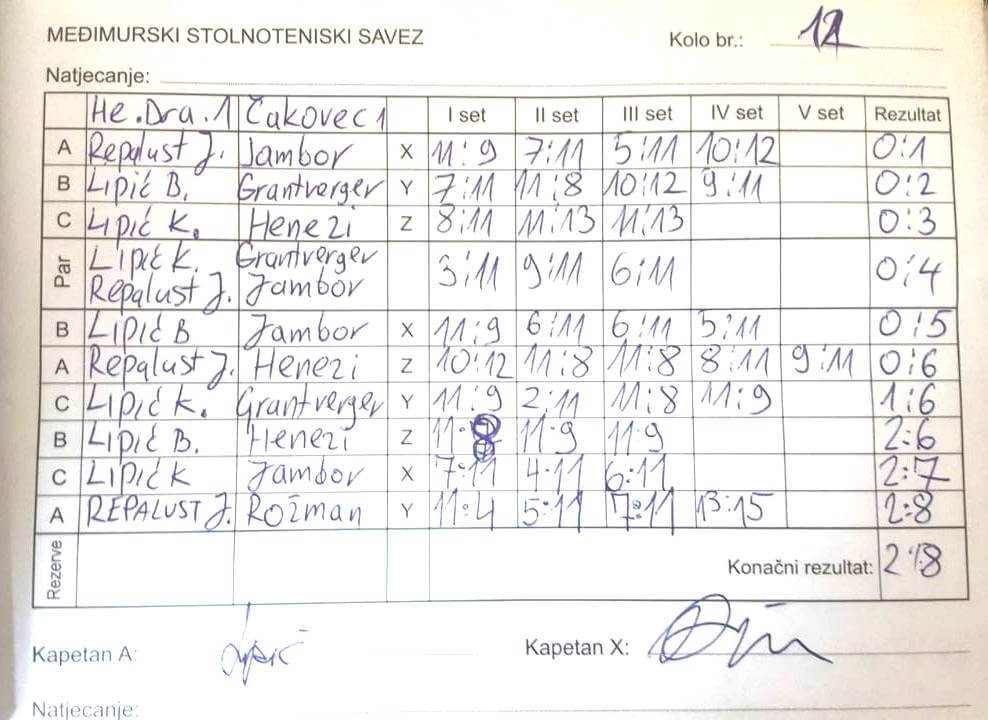 MEĐIMURSKI STOLNOTENISKI SAVEZ
Kolo br.: 12
Natjecanje:
He.Dra.1 Čakovec 1 I set II set III set IV set V set Rezultat
A Repalust J. Jambor X 11:9 7:11 5:11 10:12 0:1
B Lipić B. Grantverger Y 7:11 11:8 10:12 9:11 0:2
C Lipić K. Henezi Z 8:11 11:13 11:13 0:3
Par Lipić K. Grantverger 3:11 9:11 6:11 0:4
Repalust J. Jambor
B Lipić B Jambor X 11:9 6:11 6:11 5:11 0:5
A Repalust J. Henezi Z 10:12 11:8 11:8 8:11 9:11 0:6
C Lipić K. Grantverger Y 11:9 2:11 11:8 11:9 1:6
B Lipić B. Henezi Z 11:8 11:9 11:9 2:6
C Lipić K Jambor X 7:11 4:11 6:11 2:7
A REPALUST J. Rožman Y 11:4 5:11 7:11 13:15 2:8
Rezerve Konačni rezultat: 2:8
Kapetan A: Lipić Kapetan X:
Natjecanje: